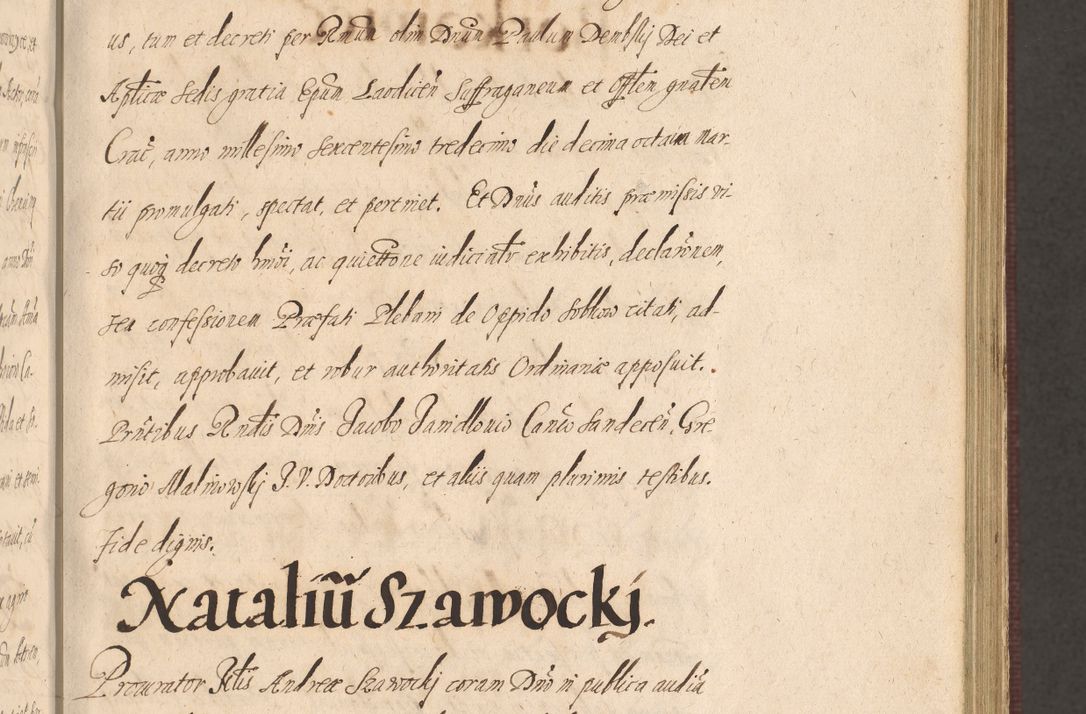 us, tum et decreti per Rmum olim Dnum Paulum Dembskij Dei et
Aplicæ Sedis gratia Epum Laodicen̄ Suffraganeum et Offlem gnalem
Crac̄, anno millesimo sexcentesimo tredecimo die decima octaua Mar-
tii promulgati, spectat, et pertinet. Et Dnus auditis præmissis vi-
so quoq decreto hmoi, ac quiettone iudicialr exhibitis, declaronem,
seu confessionem Præfati Plebani de Oppido Sobkow citati, ad-
misit, approbauit, et robur authoritatis Ordinariæ apposuit.
Pntibus Rndis Dnis Jacobo Janidlouio Canco Sandecen̄, Gre
gorio Malinowskij J. V. Doctoribus, et aliis quam plurimis testibus.
Fide dignis.
Nataliū Szawockj.
Procurator Nblis Andreæ Szawockj coram Dno in publica audia